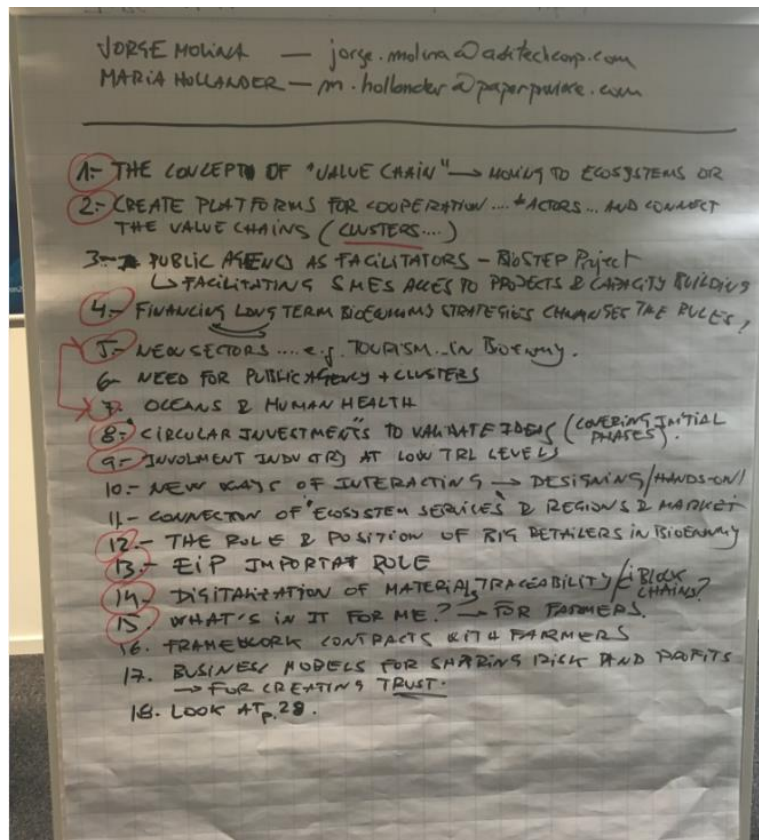 JORGE MOLINA — jorge.molina@aditechcorp.com
MARIA HOLLANDER — m.hollander@paperprovince.com
1.- THE CONCEPT OF "VALUE CHAIN" → MOVING TO ECOSYSTEMS OR
2.- CREATE PLATFORMS FOR COOPERATION .... ACTORS ... AND CONNECT
THE VALUE CHAINS (CLUSTERS....)
3.- PUBLIC AGENCY AS FACILITATORS - BIOSTEP Project
↳ FACILITATING SMES ACCES TO PROJECTS & CAPACITY BUILDING
4.- FINANCING LONG TERM BIOECONOMY STRATEGIES CHANGES THE RULES!
5.- NEW SECTORS .... e.g. TOURISM .. IN Bioecony.
6- NEED FOR PUBLIC AGENCY + CLUSTERS
7. OCEANS & HUMAN HEALTH
8.- "CIRCULAR INVESTMENTS" TO VALIDATE IDEAS (COVERING INITIAL
PHASES).
9.- INVOLMENT INDUSTRY AT LOW TRL LEVELS
10.- NEW WAYS OF INTERACTING → DESIGNING/HANDS-ON/
11.- CONNECTON OF "ECOSYSTEM SERVICES" & REGIONS & MARKET
12.- THE ROLE & POSITION OF BIG RETAILERS IN BIOECONOMY
13.- EIP IMPORTAT ROLE
14.- DIGITALIZATION OF MATERIALS TRACEABILITY/¿BLOCK
CHAINS?
15. WHAT'S IN IT FOR ME? → FOR FARMERS.
16. FRAMEWORK CONTRACTS WITH FARMERS
17. BUSINESS MODELS FOR SHARING RISK AND PROFITS
→ FOR CREATING TRUST.
18. LOOK AT p.28.